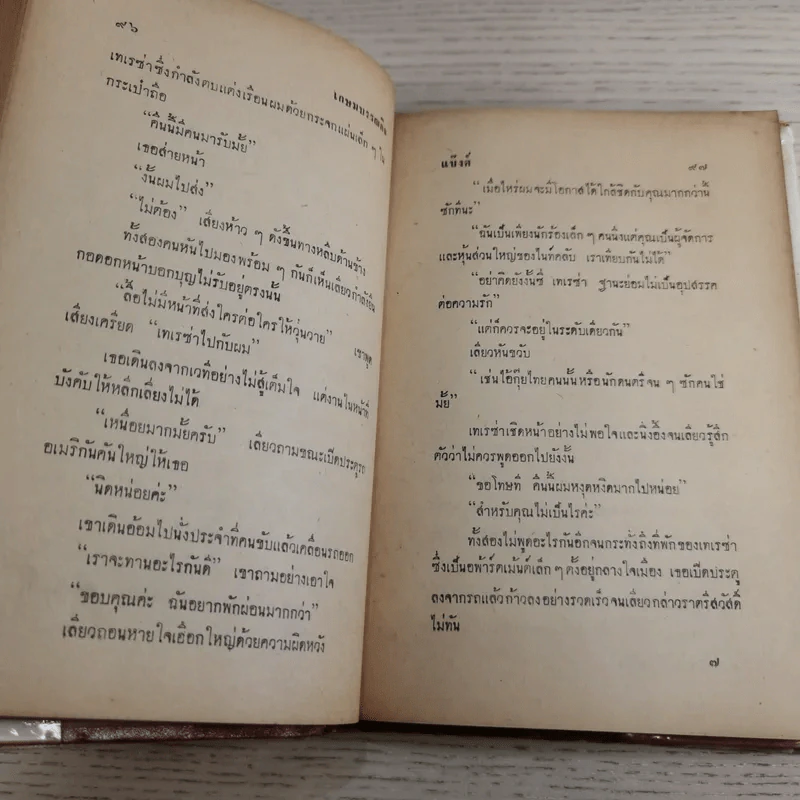 ๙๖
เกษมบรรณกิจ
เทเรซ่าซึ่งกำลังตบแต่งเรือนผมด้วยกระจกแผ่นเล็ก ๆ ใน
กระเป๋าถือ
“คืนนี้มีคนมารับมั้ย”
เธอส่ายหน้า
“งั้นผมไปส่ง”
“ไม่ต้อง” เสียงห้าว ๆ ดังขึ้นทางหลืบด้านข้าง
ทั้งสองคนหันไปมองพร้อม ๆ กันก็เห็นเลี่ยวกำลังยืน
กอดอกหน้าบอกบุญไม่รับอยู่ตรงนั้น
“ลื้อไม่มีหน้าที่ส่งใครต่อใครให้วุ่นวาย” เขาพูด
เสียงเครียด “เทเรซ่าไปกับผม”
เธอเดินลงจากเวทีอย่างไม่สู้เต็มใจ แต่งานในหน้าที่
บังคับให้หลีกเลี่ยงไม่ได้
“เหนื่อยมากมั้ยครับ” เลี่ยวถามขณะเปิดประตูรถ
อเมริกันคันใหญ่ให้เธอ
“นิดหน่อยค่ะ”
เขาเดินอ้อมไปนั่งประจำที่คนขับแล้วเคลื่อนรถออก
“เราจะทานอะไรกันดี” เขาถามอย่างเอาใจ
“ขอบคุณค่ะ ฉันอยากพักผ่อนมากกว่า”
เลี่ยวถอนหายใจเฮือกใหญ่ด้วยความผิดหวัง
แบ๊งค์
๙๗
“เมื่อไหร่ผมจะมีโอกาสได้ใกล้ชิดกับคุณมากกว่านี้
ซักทีนะ”
“ฉันเป็นเพียงนักร้องเล็ก ๆ คนนึงแต่คุณเป็นผู้จัดการ
และหุ้นส่วนใหญ่ของไนท์คลับ เราเทียบกันไม่ได้”
“อย่าคิดยังงั้นซี เทเรซ่า ฐานะย่อมไม่เป็นอุปสรรค
ต่อความรัก”
“แต่ก็ควรจะอยู่ในระดับเดียวกัน”
เลี่ยวหันขวับ
“เช่นไอ้กุ๊ยไทยคนนั้นหรือนักดนตรีจน ๆ ซักคนใช่
มั้ย”
เทเรซ่าเชิดหน้าอย่างไม่พอใจและนิ่งอึ้งจนเลี่ยวรู้สึก
ตัวว่าไม่ควรพูดออกไปยังงั้น
“ขอโทษที คืนนี้ผมหงุดหงิดมากไปหน่อย”
“สำหรับคุณไม่เป็นไรค่ะ”
ทั้งสองไม่พูดอะไรกันอีกจนกระทั่งถึงที่พักของเทเรซ่า
ซึ่งเป็นอพ้าร์ตเม้นต์เล็ก ๆ ตั้งอยู่กลางใจเมือง เธอเปิดประตู
ลงจากรถแล้วก้าวลงอย่างรวดเร็วจนเลี่ยวกล่าวราตรีสวัสดิ์
ไม่ทัน
๗